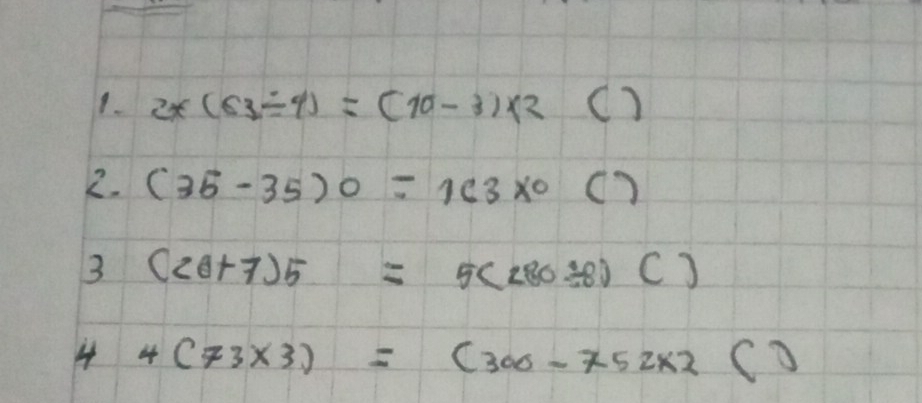 1. 2x(63÷9) = (10-3)x2 ()
2. (35-35)0 = 1(3x0 ()
3 (28+7)5 = 5(280÷8) ()
4 4(73x3) = (300-752x2 ()